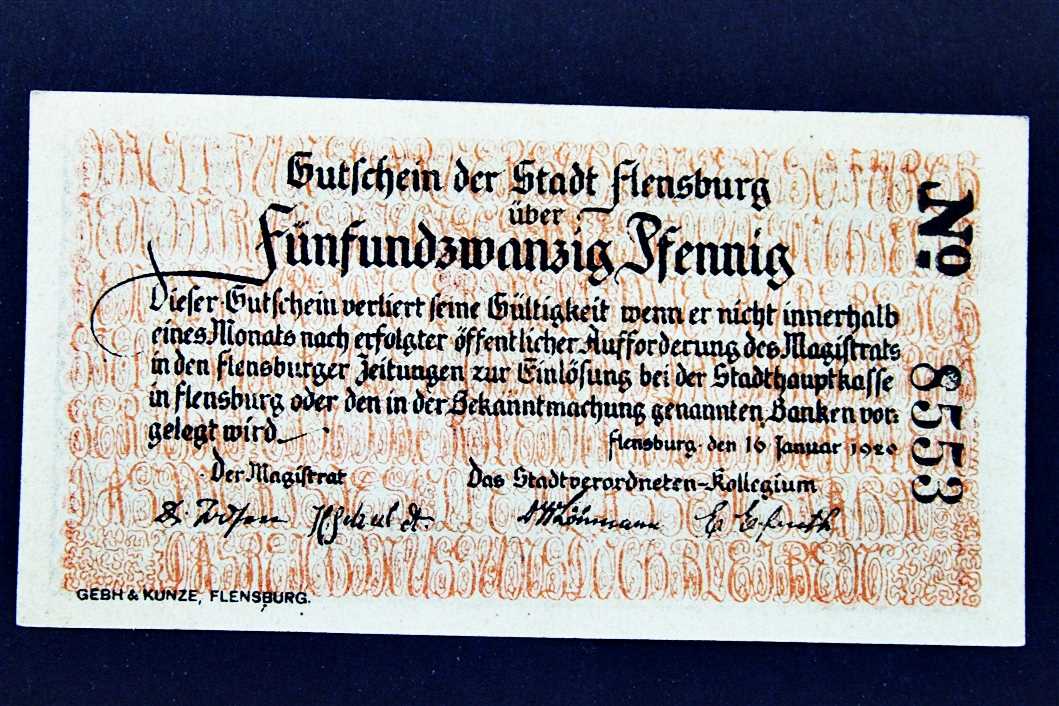 Gutschein der Stadt Flensburg
über
Fünfundzwanzig Pfennig
Dieser Gutschein verliert seine Gültigkeit wenn er nicht innerhalb
eines Monats nach erfolgter öffentlicher Aufforderung des Magistrats
in den Flensburger Zeitungen zur Einlösung bei der Stadthauptkasse
in Flensburg oder den in der Bekanntmachung genannten Banken vor=
gelegt wird
Flensburg, den 16 Januar 1920
Der Magistrat
Das Stadtverordneten-Kollegium
GEBH & KUNZE, FLENSBURG.
No. 8553